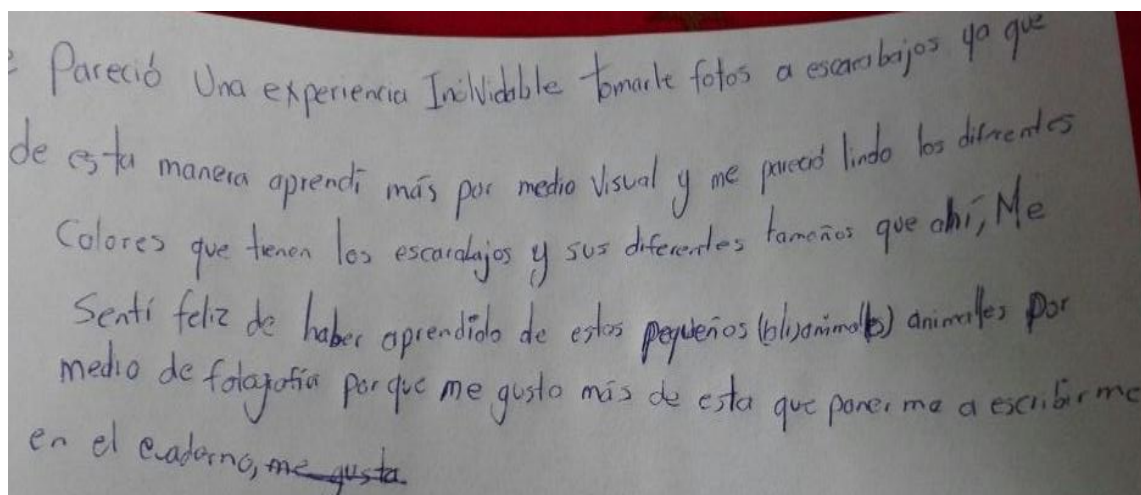 e Pareció Una experiencia Inolvidable tomarle fotos a escarabajos ya que
de esta manera aprendí más por medio Visual y me pareció lindo los diferentes
Colores que tienen los escarabajos y sus diferentes tamaños que ahí, Me
Sentí feliz de haber aprendido de estos pequeños animales por
medio de fotografía porque me gusto más de esta que ponerme a escribirme
en el cuaderno, me gusta.